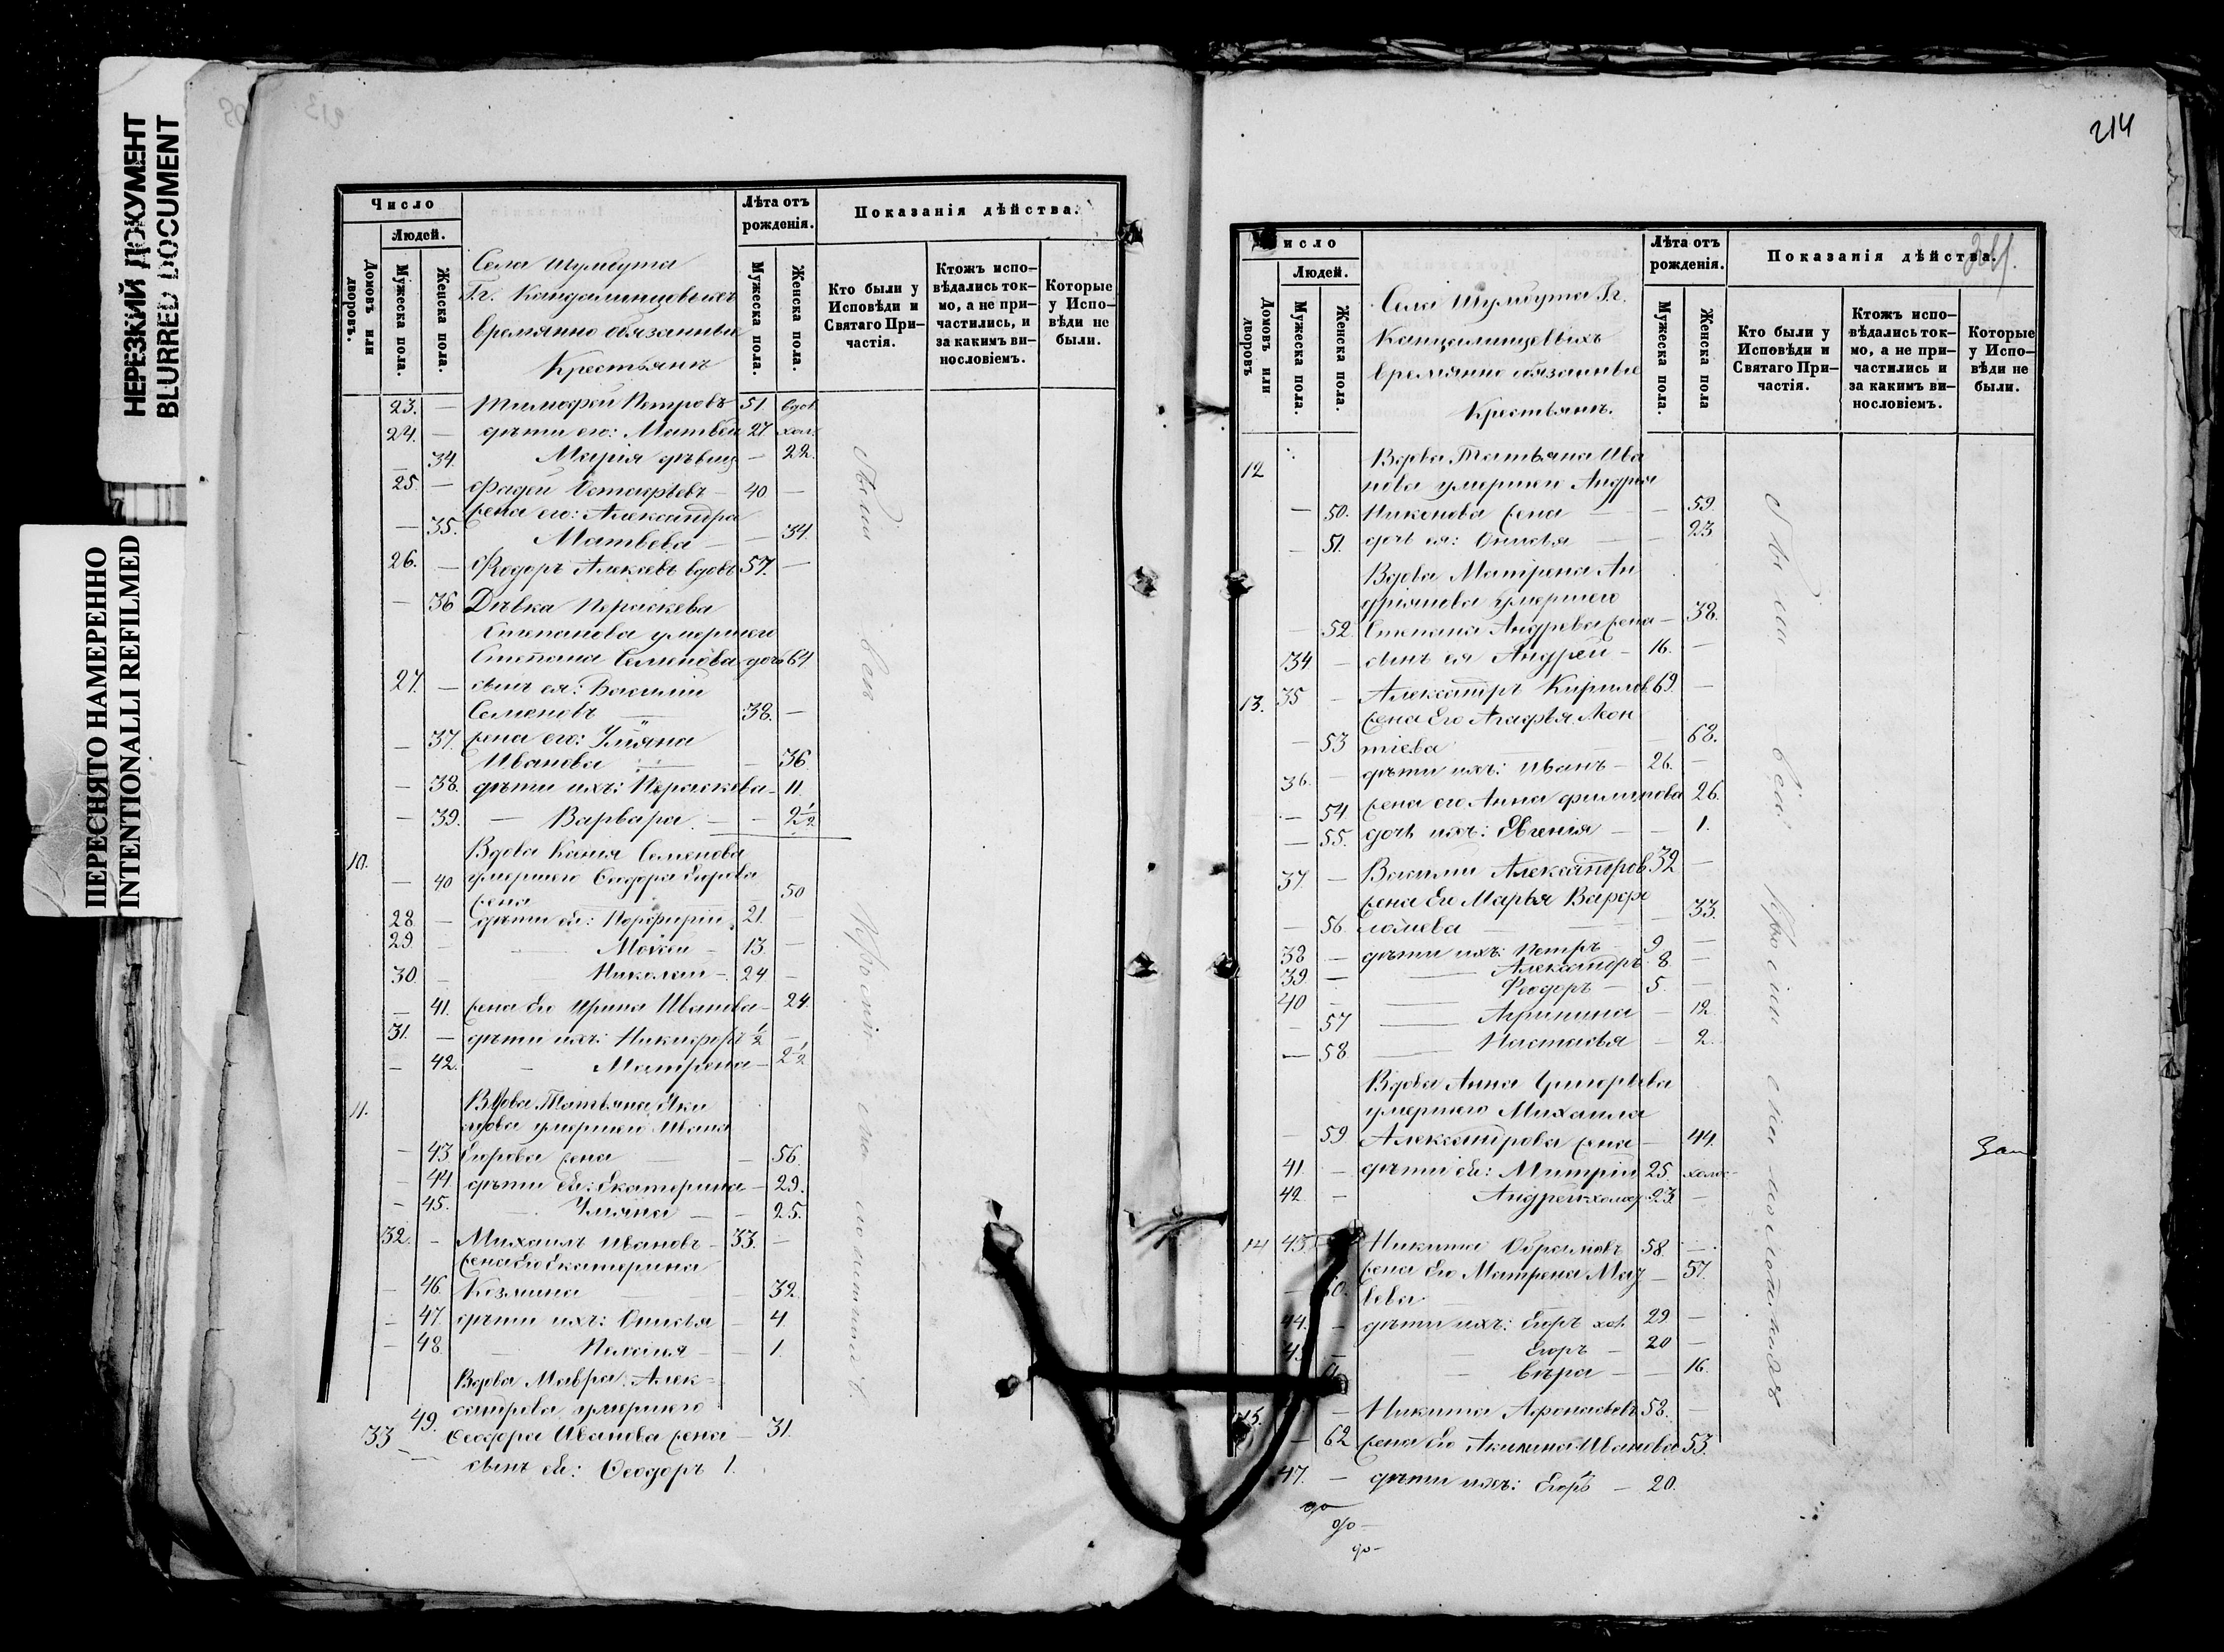 НЕРЕЗКИЙ ДОКУМЕНТ
BLURRED DOCUMENT
ПЕРЕСНЯТО НАМЕРЕННО
INTENTIONALLI REFILMED
213
Число
Людей.
Домовъ или дворовъ.
Мужеска пола.
Женска пола.
Села Шулмута
Гг. Канцелинцовыхъ
временно обязанные
Крестьянъ
Лѣта отъ рожденія.
Мужеска пола.
Женска пола.
Показанія дѣйства.
Кто были у Исповѣди и Святаго Причастія.
Ктожъ исповѣдались токмо, а не причастились, и за какимъ винословіемъ.
Которые у Исповѣди не были.
23. — Тимофей Петровъ 51. вдов.
24. — дѣти его: Матвей 27 хол.
— 34. Марія дѣвица — 22.
25. — Фадей Остафьевъ — 40 —
жена его: Александра
— 35. Матвева — — 34.
26. — Феодоръ Алексевъ вдовъ 57. —
— 36 Дѣвка Пераскева
Степанова умершего
Степана Семенова дочь 64
27. — сынъ ея: Василій
Семеновъ — 38. —
— 37. жена его: Уліяна
Иванова — — 36.
— 38. дѣти ихъ: Пераскева — 11.
— 39. — Варвара — — 2½
10. Вдова Ксенія Семенова
— 40 умершего Сидора Егорова
жена 50
28 — дѣти ея: Порфирій 21. —
29 — — Моисей — 13. —
30. — Николай — 24 —
— 41. жена Его Ирина Иванова — 24.
31. — дѣти ихъ: Никифоръ ½ —
— 42. — Матрена — 2½
11. Вдова Татьяна Яки
мова умершего Ивана
— 43. Егорова жена — 56.
— 44. дѣти ея: Екатерина — 29.
— 45. — Уліяна — — 25.
32. — Михаилъ Ивановъ — 33. —
жена Его Екатерина
— 46. Козмина — 32.
— 47. дѣти ихъ: Онисья — 4.
— 48. — Пелагия — — 1.
Вдова Мавра Алек-
сандрова умершего
49. Феодора Иванова жена — 31.
33 — сынъ ея: Феодоръ 1.
Были вси
214
Число
Людей.
Домовъ или дворовъ
Мужеска пола.
Женска пола.
Села Шулмута Гг.
Канцелинцевыхъ
временно обязанные
Крестьянъ.
Лѣта отъ рожденія.
Мужеска пола.
Женска пола
Показанія дѣйства.
Кто были у Исповѣди и Святаго Причастія.
Ктожъ исповѣдались токмо, а не причастились и за какимъ винословіемъ.
Которые у Исповѣди не были.
12 Вдова Татьяна Ива
нова умершего Андрея
— 50. Никонова жена — — 59.
— 51. дочь ея: Онисья — — 23
Вдова Матрена Ан
дріянова умершего
— 52. Степана Андрева жена — 38.
34 — сынъ ея Андрей — 16. —
13. 35 — Александръ Кирилов 69. —
жена Его Агафья Леон
— 53 тіева — 68.
36. — дѣти ихъ: Иванъ — 26. —
— 54. жена его Анна Филипова 26.
— 55. дочь ихъ: Евгенія — — 1.
37 — Василий Александров 32 —
жена Его Марья Варфо
— 56. ломева — 33.
38 — дѣти ихъ: Петръ — 9 —
39 — — Александръ 8. —
40 — Феодоръ — 5. —
— 57 — Агрипина — 12.
— 58 — Настасья — 2.
Вдова Анна Григорьева
умершего Михаила
— 59. Александрова жена — 44.
41. — дѣти ея: Митрій 25. холос
42. — Андрей холос 23. —
14 43. Никита Обрамовъ 58. —
жена Его Матрена Мат — 57.
— 60. вева
44. — дѣти ихъ: Егоръ хол. 29. —
45 — Егоръ — 20 —
— Вѣра — — 16.
15. — Никита Афонасьевъ 58. —
— 62 жена Его Акилина Иванова 53.
47. — дѣти ихъ: Егоръ — 20.
до
до —
до —
Были вси